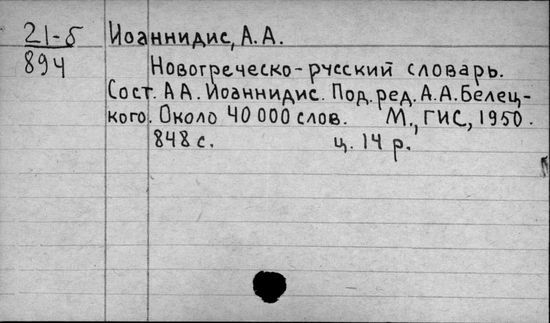 21-б Иоаннидис, А. А.
894 Новогреческо-русский словарь.
Сост. А А. Иоаннидис. Под. ред. А. А. Белец-
кого. Около 40 000 слов. М., ГИС, 1950.
848 с. ц. 14 р.